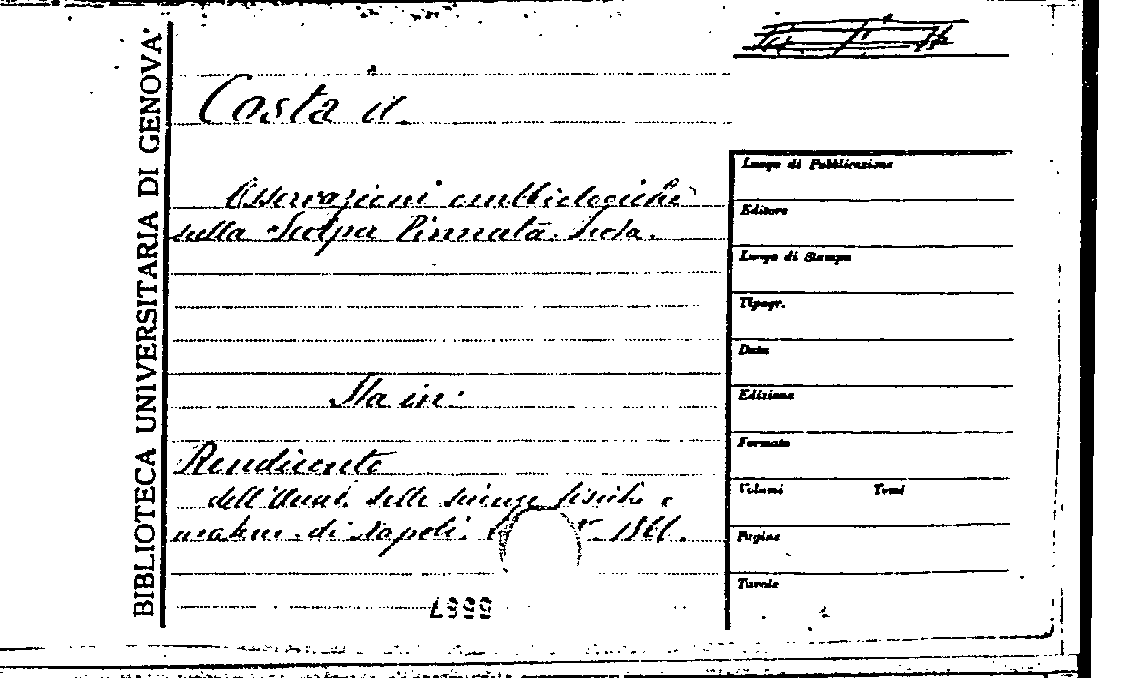 BIBLIOTECA UNIVERSITARIA DI GENOVA
Costa A.
Osservazioni embriologiche
sulla Scolpa Pinnata. Leda.
Sta in:
Rendiconto
dell'Accad. delle scienze fisiche e
matem. di Napoli. 1861.
Luogo di Pubblicazione
Editore
Luogo di Stampa
Tipogr.
Data
Edizione
Formato
Volumi Tomi
Pagine
Tavole